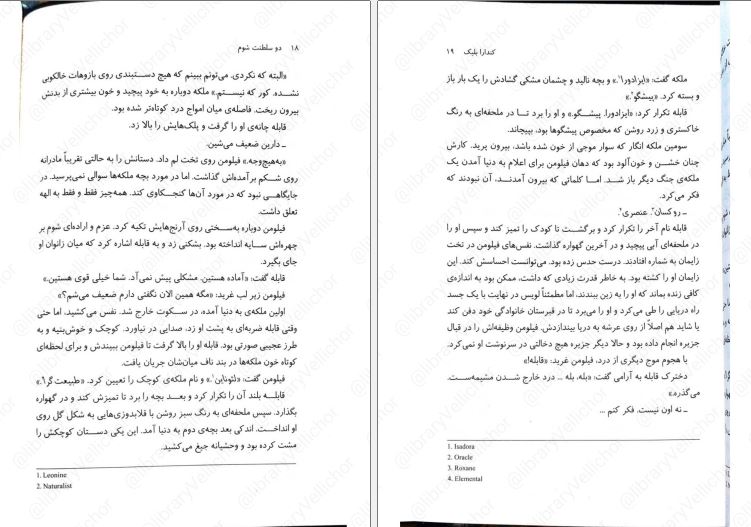 ۱۸ دو سلطنت شوم
«البته که نکردی. می‌تونم ببینم که هیچ دستبندی روی بازوهات خالکوبی
نشده. کور که نیستم.» ملکه دوباره به خود پیچید و خون بیشتری از بدنش
بیرون ریخت. فاصله‌ی میان امواج درد کوتاه‌تر شده بود.
قابله چانه‌ی او را گرفت و پلک‌هایش را بالا زد.
ـ دارین ضعیف می‌شین.
«به‌هیچ‌وجه.» فیلومن روی تخت لم داد. دستانش را به حالتی تقریباً مادرانه
روی شکم برآمده‌اش گذاشت. اما در مورد بچه ملکه‌ها سوالی نمی‌پرسید. در
جایگاهی نبود که در مورد آن‌ها کنجکاوی کند. همه‌چیز فقط و فقط به الهه
تعلق داشت.
فیلومن دوباره به‌سختی روی آرنج‌هایش تکیه کرد. عزم و اراده‌ای شوم بر
چهره‌اش سایه انداخته بود. بشکنی زد و به قابله اشاره کرد که میان زانوان او
جای بگیرد.
قابله گفت: «آماده هستین. مشکلی پیش نمی‌آد. شما خیلی قوی هستین.»
فیلومن زیر لب غرید: «مگه همین الان نگفتی دارم ضعیف می‌شم؟»
اولین ملکه‌ی به دنیا آمده، در سکوت خارج شد. نفس می‌کشید. اما حتی
وقتی قابله ضربه‌ای به پشت او زد، صدایی در نیاورد. کوچک و خوش‌بنیه و به
طرز عجیبی صورتی بود. قابله او را بالا گرفت تا فیلومن ببیندش و برای لحظه‌ای
کوتاه خون ملکه‌ها در بند ناف میان‌شان جریان یافت.
فیلومن گفت: «لئوناین¹.» و نام ملکه‌ی کوچک را تعیین کرد. «طبیعت گرا².»
قابله بلند آن را تکرار کرد و بعد بچه را برد تا تمیزش کند و در گهواره
بگذارد. سپس ملحفه‌ای به رنگ سبز روشن با قلابدوزی‌هایی به شکل گل روی
او انداخت. اندکی بعد بچه‌ی دوم به دنیا آمد. این یکی دستان کوچکش را
مشت کرده بود و وحشیانه جیغ می‌کشید.
1. Leonine
2. Naturalist
کندارا بلیک ۱۹
ملکه گفت: «ایزادورا¹.» و بچه نالید و چشمان مشکی گشادش را یک بار باز
و بسته کرد. «پیشگو².»
قابله تکرار کرد: «ایزادورا. پیشگو.» و او را برد تا در ملحفه‌ای به رنگ
خاکستری و زرد روشن که مخصوص پیشگوها بود، بپیچاند.
سومین ملکه انگار که سوار موجی از خون شده باشد، بیرون پرید. کارش
چنان خشن و خون‌آلود بود که دهان فیلومن برای اعلام به دنیا آمدن یک
ملکه‌ی جنگ دیگر باز شد. اما کلماتی که بیرون آمدند، آن نبودند که
فکر می‌کرد.
ـ روکسان³. عنصری⁴.
قابله نام آخر را تکرار کرد و برگشت تا کودک را تمیز کند و سپس او را
در ملحفه‌ای آبی پیچید و در آخرین گهواره گذاشت. نفس‌های فیلومن در تخت
زایمان به شماره افتادند. درست حدس زده بود. می‌توانست احساسش کند. این
زایمان او را کشته بود. به خاطر قدرت زیادی که داشت، ممکن بود به اندازه‌ی
کافی زنده بماند که او را به زین ببندند، اما مطمئناً لویس در نهایت با یک جسد
راه دریایی را طی می‌کرد و او را می‌برد تا در قبرستان خانوادگی خود دفن کند
یا شاید هم اصلاً از روی عرشه به دریا بیندازدش. فیلومن وظیفه‌اش را در قبال
جزیره انجام داده بود و حالا دیگر جزیره هیچ دخالتی در سرنوشت او نمی‌کرد.
با هجوم موج دیگری از درد، فیلومن غرید: «قابله!»
دخترک قابله به آرامی گفت: «بله، بله ... درد خارج شدن مشیمه‌ست.
می‌گذره.»
ـ نه اون نیست. فکر کنم ...
1. Isadora
2. Oracle
3. Roxane
4. Elemental
@libraryVellichor